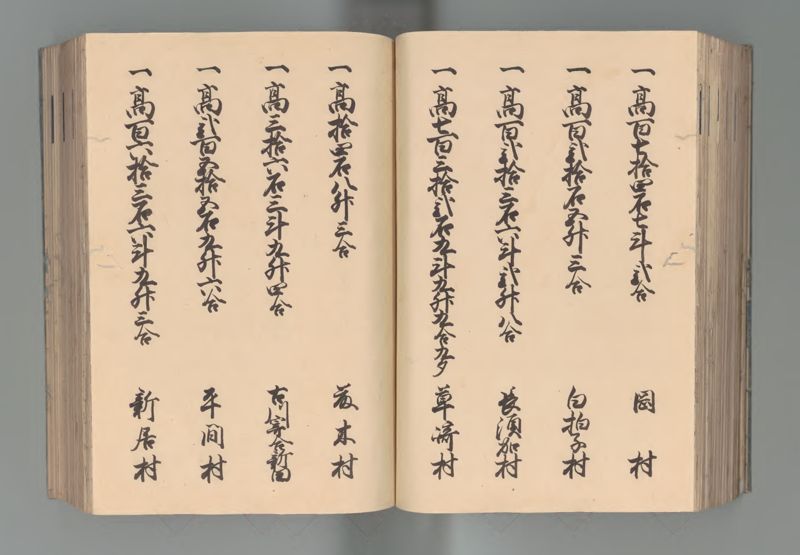 一高百七拾四石七斗弐合 岡村
一高百弐拾石五升三合 白拍子村
一高百弐拾三石六斗弐升八合 長須加村
一高七百三拾弐石九斗九升九合九夕 草崎村
一高拾四石八升三合 茂木村
一高三拾六石三斗九升四合 古川寄合新田
一高弐百五拾五石九升六合 平間村
一高百六拾三石六斗九升三合 新居村